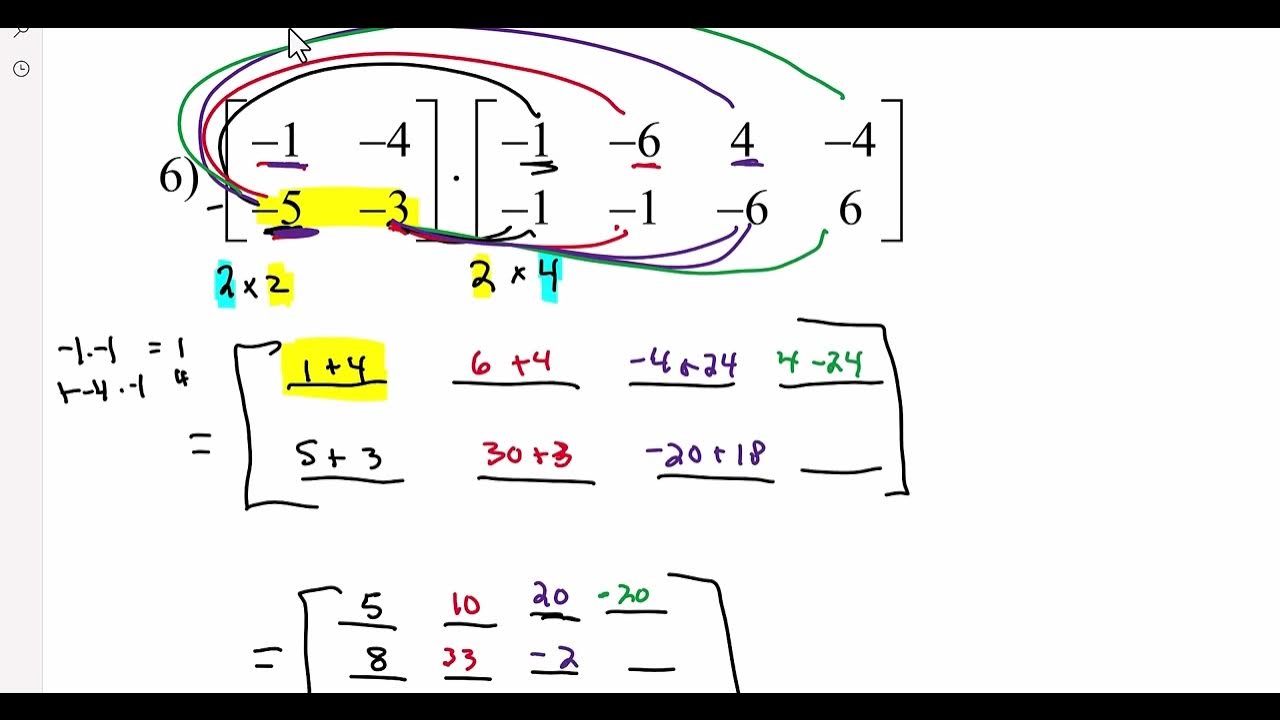 −1 −4 −1 −6 4 −4
6) ·
−5 −3 −1 −1 −6 6
2 × 2 2 × 4
-1·-1 = 1
+-4·-1 4
1+4 6+4 -4+24 4-24
=
5+3 30+3 -20+18
5 10 20 -20
=
8 33 -2